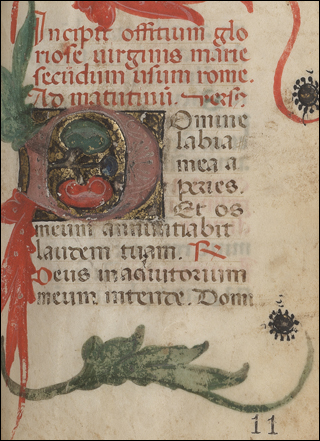 Incipit offitium glo
riose virginis marie
secundum usum rome.
Ad matutinũ. Versꝰ
Domine
labia
mea a
peries.
Et os
meum annuntiabit
laudem tuam. R
Deus in adiutorium
meum intende. Domi
11